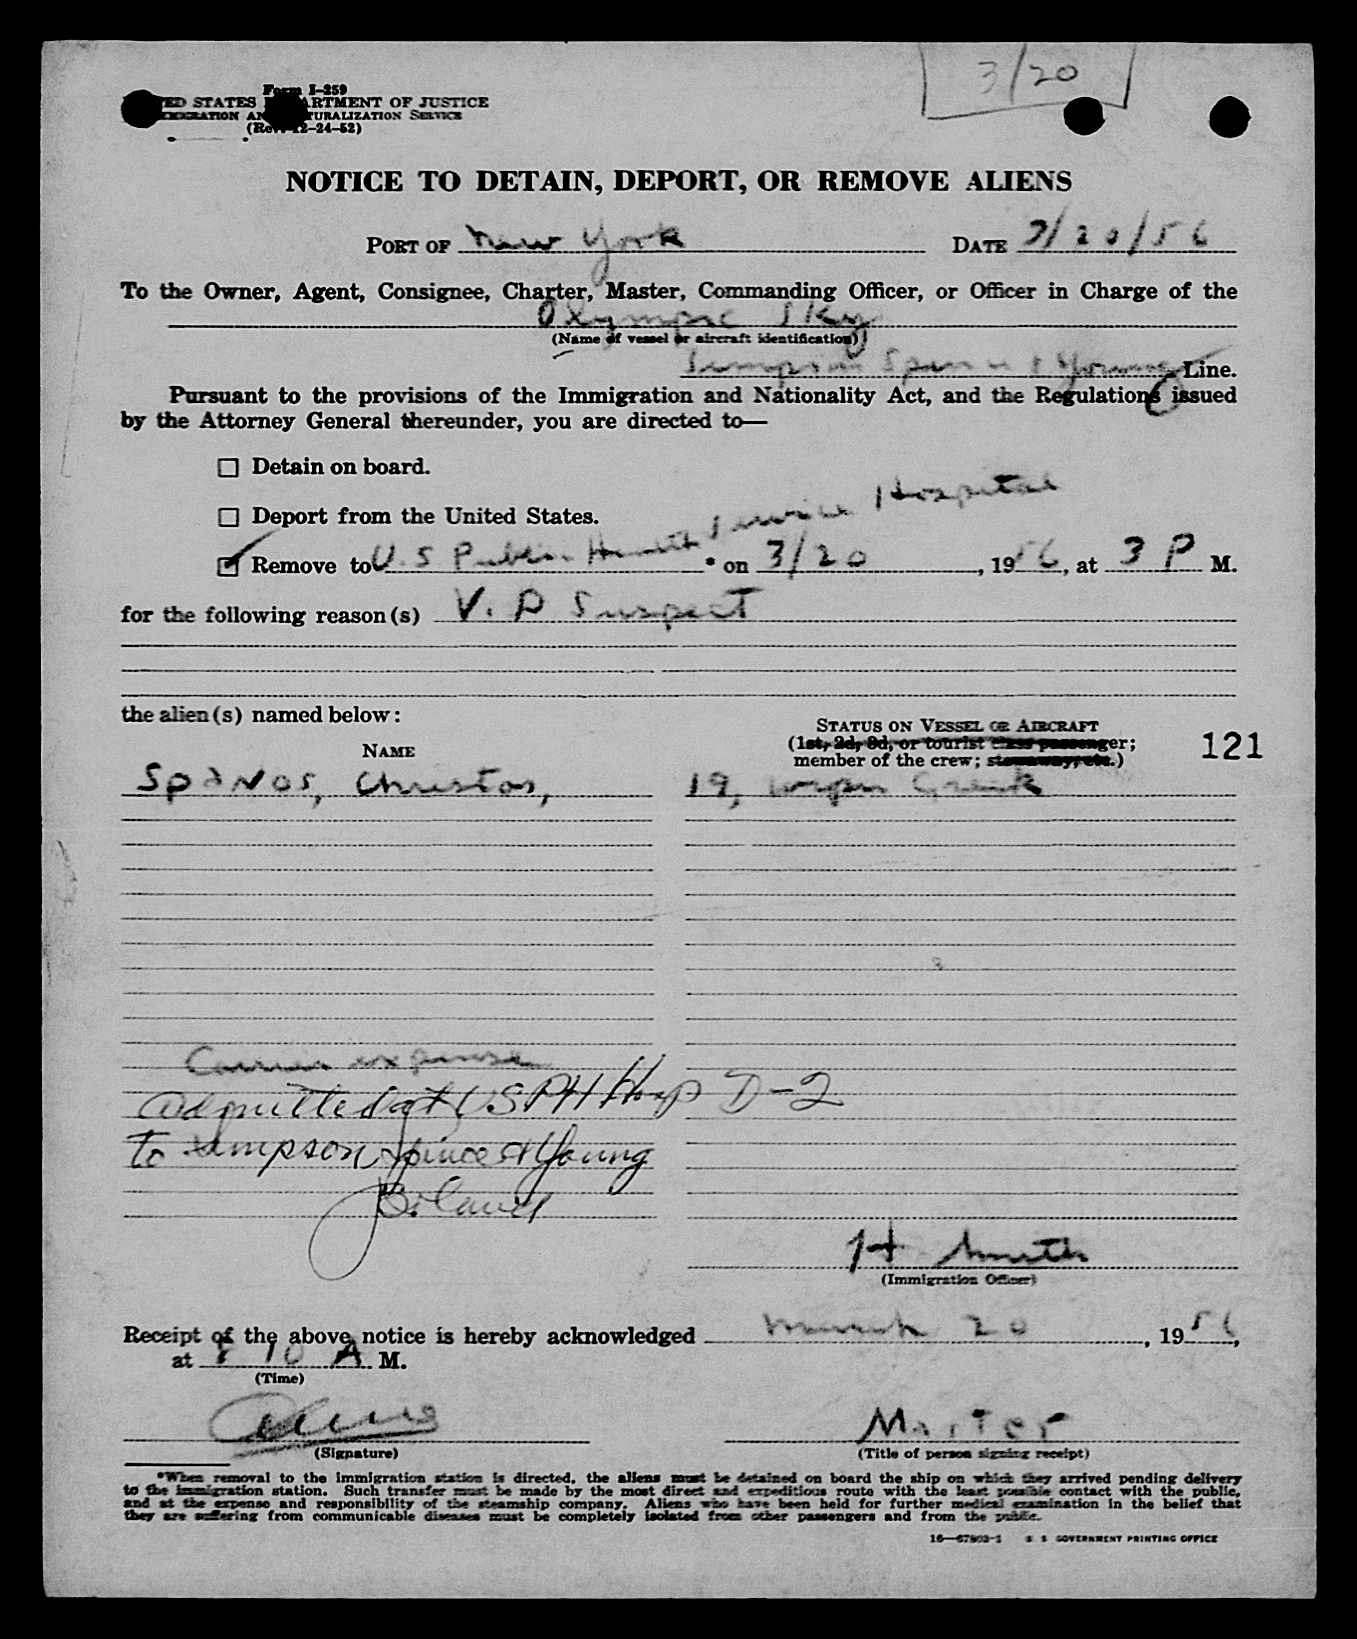 3/20
Form I-259
UNITED STATES DEPARTMENT OF JUSTICE
IMMIGRATION AND NATURALIZATION SERVICE
(Rev. 12-24-52)
NOTICE TO DETAIN, DEPORT, OR REMOVE ALIENS
PORT OF New York DATE 3/20/56
To the Owner, Agent, Consignee, Charter, Master, Commanding Officer, or Officer in Charge of the
Olympic Sky
(Name of vessel or aircraft identification)
Simpson Spence & Young Line.
Pursuant to the provisions of the Immigration and Nationality Act, and the Regulations issued
by the Attorney General thereunder, you are directed to—
☐ Detain on board.
☐ Deport from the United States.
☑ Remove to U.S Public Health Service Hospital * on 3/20, 1956, at 3 P M.
for the following reason(s) V. D Suspect
the alien(s) named below:
STATUS ON VESSEL OR AIRCRAFT
(1st, 2d, 3d, or tourist class passenger;
member of the crew; stowaway, etc.)
121
NAME
Spanos, Christos, 19, Greek
Carrier expense
Admitted at USPH Hosp D-2
To Simpson Spence & Young
H Smith
(Immigration Officer)
Receipt of the above notice is hereby acknowledged March 20, 1956,
at 8 10 A M.
(Time)
Master
(Signature) (Title of person signing receipt)
*When removal to the immigration station is directed, the aliens must be detained on board the ship on which they arrived pending delivery
to the immigration station. Such transfer must be made by the most direct and expeditious route with the least possible contact with the public,
and at the expense and responsibility of the steamship company. Aliens who have been held for further medical examination in the belief that
they are suffering from communicable diseases must be completely isolated from other passengers and from the public.
16—67803-1 U. S. GOVERNMENT PRINTING OFFICE